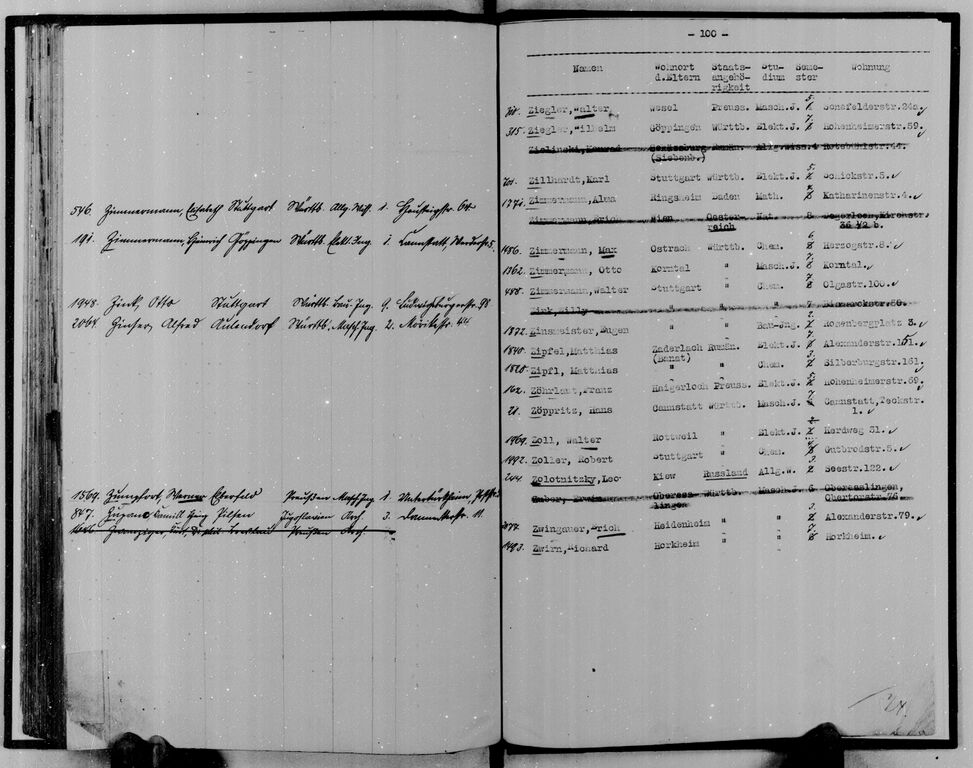 546. Zimmermann, Elisabeth Stuttgart Württb. Allg. Wiss. 1.
191. Zimmermann, Heinrich Göppingen Württb. Elekt. Ing. 1. Cannstatt,
1948. Zink, Otto Stuttgart Württb. Ing. 4. Ludwigsburgerstr. 98
2064. Zinser, Alfred Aulendorf Württb. Masch. Ing. 2. Mörikestr. 44
1569. Werner Elberfeld Preußen Masch. Ing. 1. Untertürkheim,
847. Pilsen Arch. 3. 11.
Preußen Arch.
- 100 -
Namen Wohnort Staats- Stu- Seme- Wohnung
d.Eltern angehö- dium ster
rigkeit
Ziegler, Walter Wesel Preuss. Masch.J. 5. Schefelderstr. 24a.
315. Ziegler, Wilhelm Göppingen Württb. Elekt.J. 7. Hohenheimerstr. 59.
Zielinski, Konrad Rumän. Allg.Wiss. 4 Rotebühlstr. 44.
(Siebenb.)
Zillhardt, Karl Stuttgart Württb. Elekt.J. 5. Schickstr. 5.
1771. Zimmermann, Alma Ringsheim Baden Math. Katharinenstr. 4.
Zimmermann, Erich Wien Oester- Nat. 8 Degerloch, Kirchstr.
reich 36 1/2 b.
1486. Zimmermann, Max Ostrach Württb. Chem. 6 Herzogstr. 8.
1362. Zimmermann, Otto Korntal " Masch.J. 7. Korntal.
488. Zimmermann, Walter Stuttgart " Chem. 7 Olgastr. 100.
Zink, Willy " " " 7 Bismarckstr. 60.
1872. Zinsmeister, Eugen " " Bau-Jng. 2. Rosenbergplatz 3.
1840. Zipfel, Matthias Zaderlach Rumän. Elekt.J. 7 Alexanderstr. 151.
(Banat)
1820. Zipfl, Matthias " " Chem. 3. Silberburgstr. 161.
162. Zöhrlaut, Franz Haigerloch Preuss. Elekt.J. 5. Hohenheimerstr. 69.
21. Zöppritz, Hans Cannstatt Württb. Masch.J. 7 Cannstatt, Teckstr.
1.
1969. Zoll, Walter Rottweil " Elekt.J. 2 Herdweg 31.
1492. Zoller, Robert Stuttgart " Chem. Gutbrodstr. 5.
244. Zolotnitzky, Leo Kiew Russland Allg.W. 3. Seestr. 122.
Zuber, Erwin Oberess- Württb. Masch.J. 6 Oberesslingen,
lingen Obertorstr. 76
Zwingauer, Erich Heidenheim " " 3. Alexanderstr. 79.
1493. Zwirn, Richard Horkheim " " 7. Horkheim.